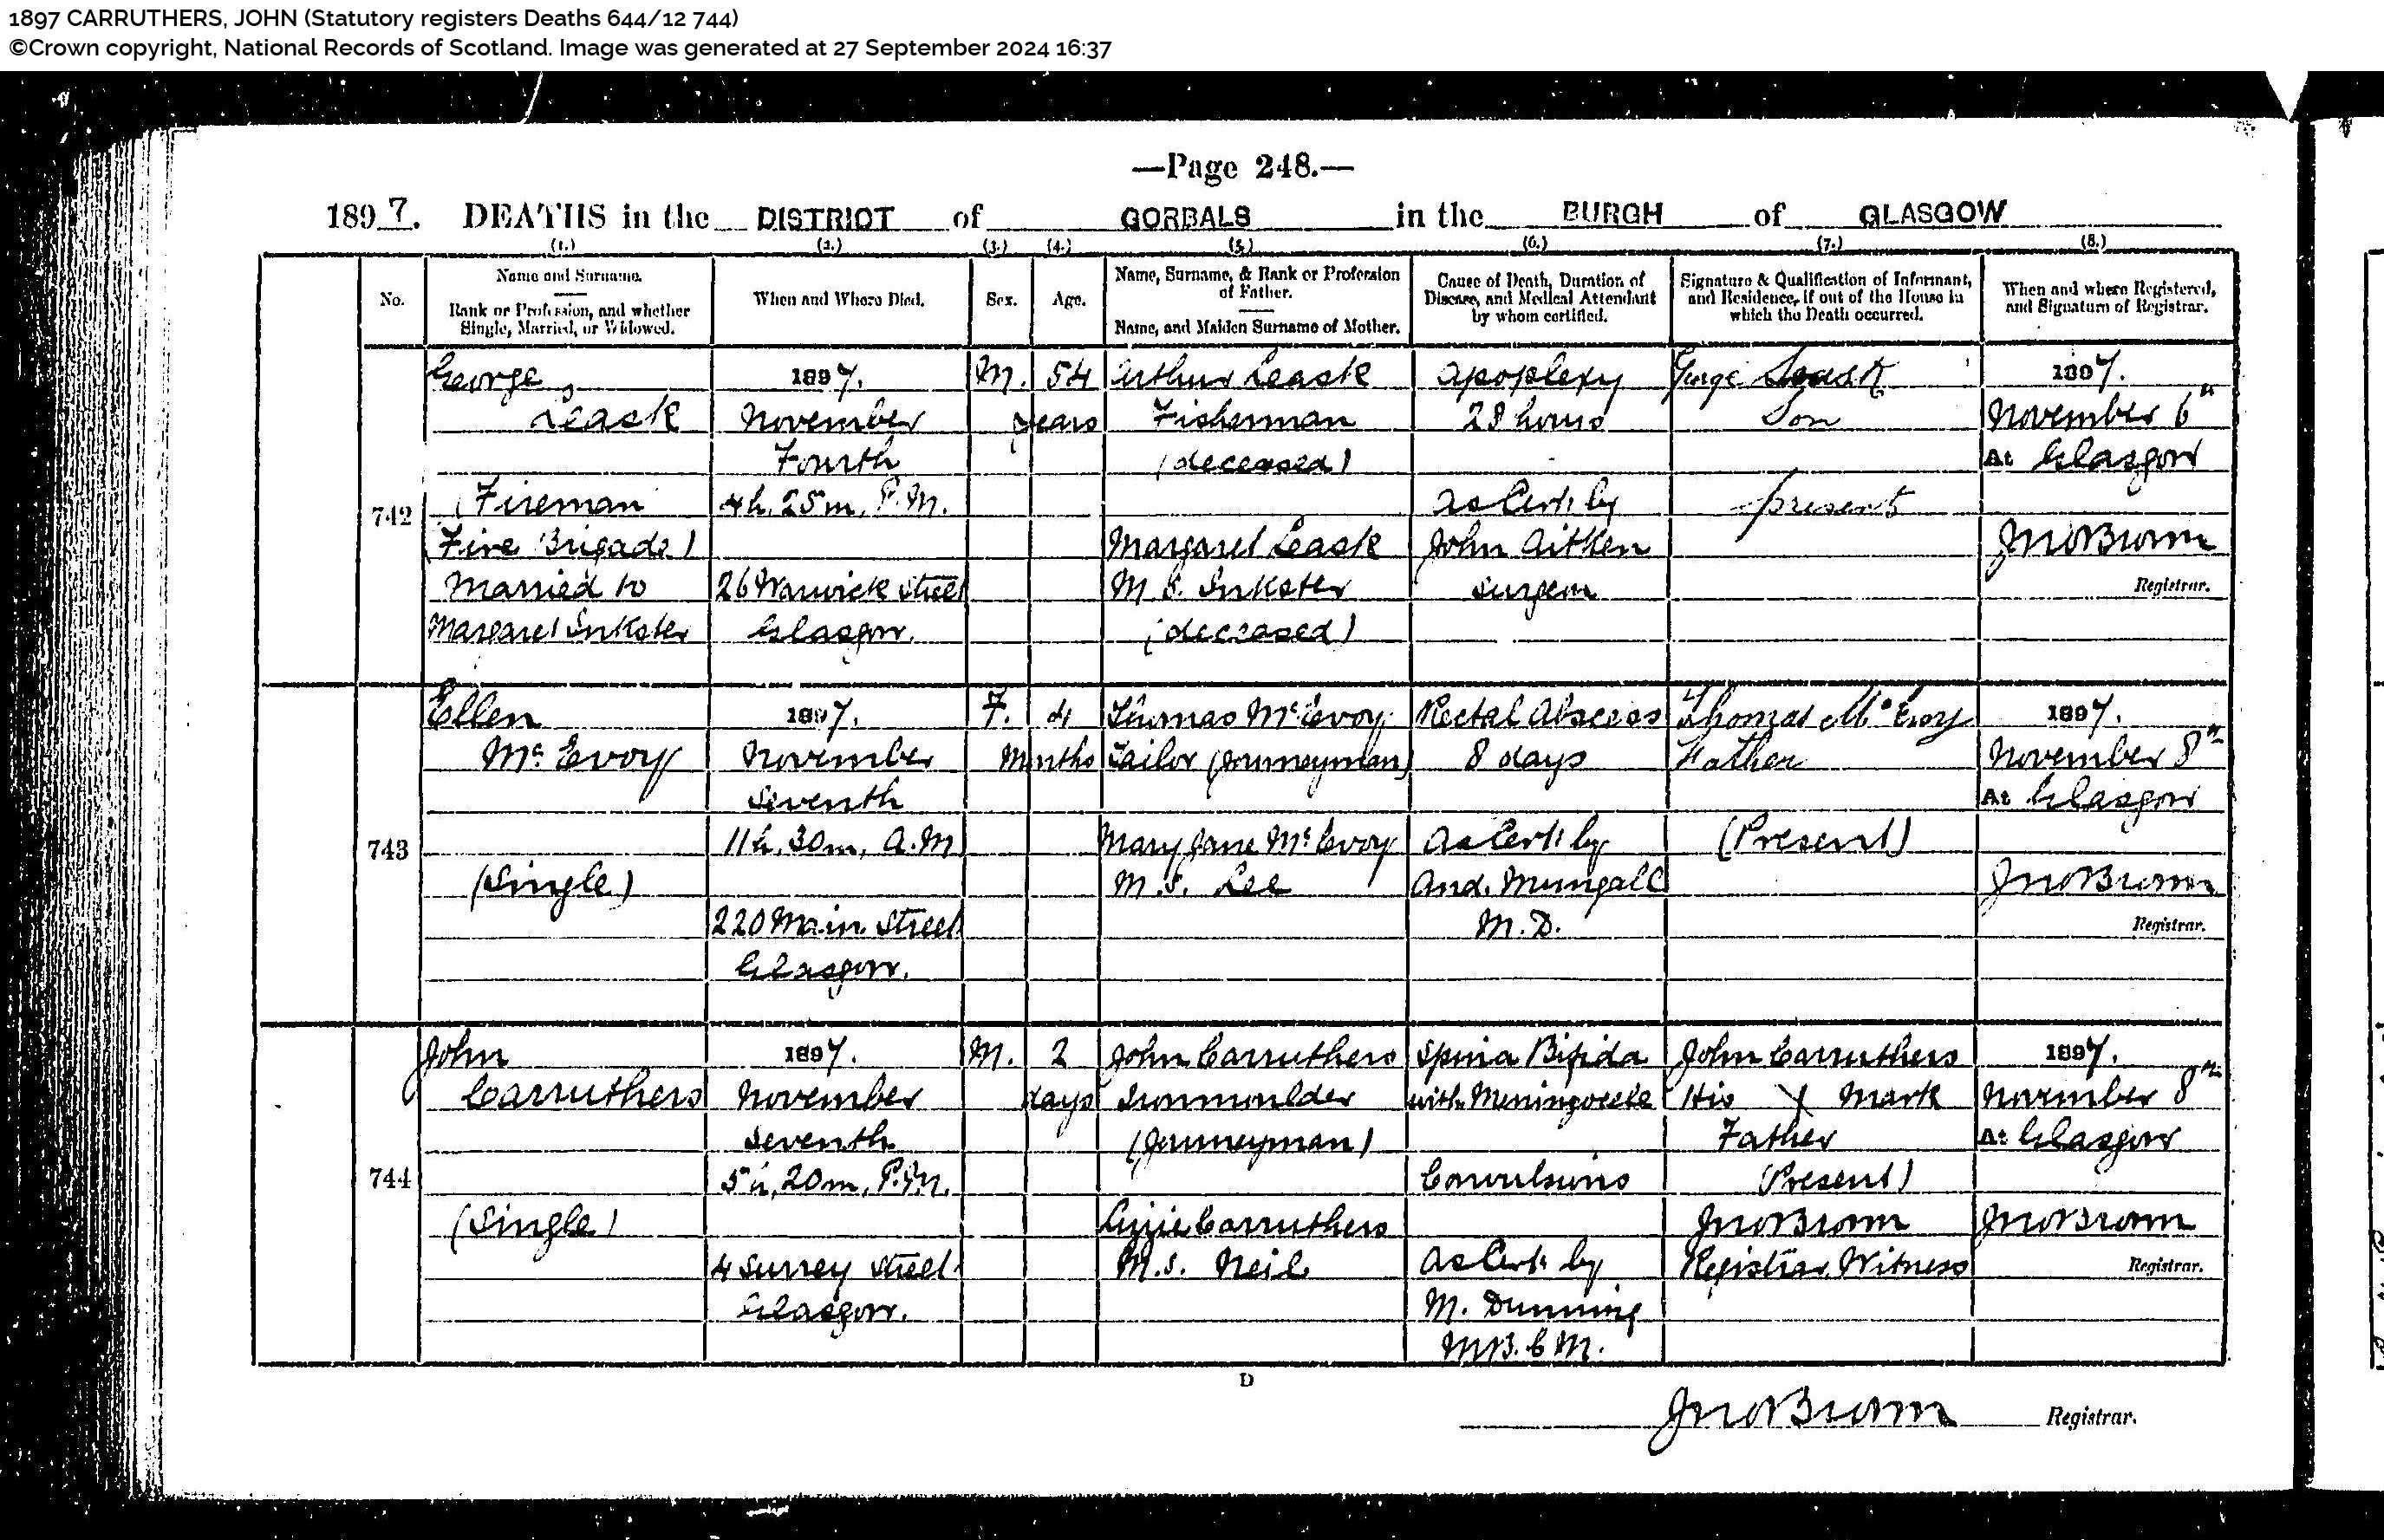 1897 CARRUTHERS, JOHN (Statutory registers Deaths 644/12 744)
©Crown copyright, National Records of Scotland. Image was generated at 27 September 2024 16:37
—Page 248.—
1897. DEATHS in the DISTRICT of GORBALS in the BURGH of GLASGOW
(1.) (2.) (3.) (4.) (5.) (6.) (7.) (8.)
No.
Name and Surname.
Rank or Profession, and whether
Single, Married, or Widowed.
When and Where Died.
Sex.
Age.
Name, Surname, & Rank or Profession
of Father.
Name, and Maiden Surname of Mother.
Cause of Death, Duration of
Disease, and Medical Attendant
by whom certified.
Signature & Qualification of Informant,
and Residence, if out of the House in
which the Death occurred.
When and where Registered,
and Signature of Registrar.
742
George
Leask
(Fireman
Fire Brigade)
Married to
Margaret Inkster
1897.
November
Fourth
4h. 25m. P.M.
26 Warwick Street
Glasgow.
M.
54
years
Arthur Leask
Fisherman
(deceased)
Margaret Leask
M.S. Inkster
(deceased)
Apoplexy
28 hours
As Cert. by
John Aitken
Surgeon
George Leask
Son
present
1897.
November 6th
At Glasgow
Jno Brown
Registrar.
743
Ellen
McEvoy
(Single)
1897.
November
Seventh
11h. 30m. A.M
220 Main Street
Glasgow.
F.
4
Months
Thomas McEvoy
Tailor (Journeyman)
Mary Jane McEvoy
M.S. Lee
Rectal Abscess
8 days
As Cert. by
And. Mungall
M.D.
Thomas McEvoy
Father
(Present)
1897.
November 8th
At Glasgow
Jno Brown
Registrar.
744
John
Carruthers
(Single)
1897.
November
Seventh
5h. 20m. P.M.
4 Surrey Street
Glasgow.
M.
2
days
John Carruthers
Ironmoulder
(Journeyman)
Lizzie Carruthers
M.S. Neil
Spina Bifida
with Meningocele
Convulsions
As Cert. by
M. Dunning
M.B. C.M.
John Carruthers
His X Mark
Father
(Present)
Jno Brown
Registrar. Witness
1897.
November 8th
At Glasgow
Jno Brown
Registrar.
D
Jno Brown Registrar.